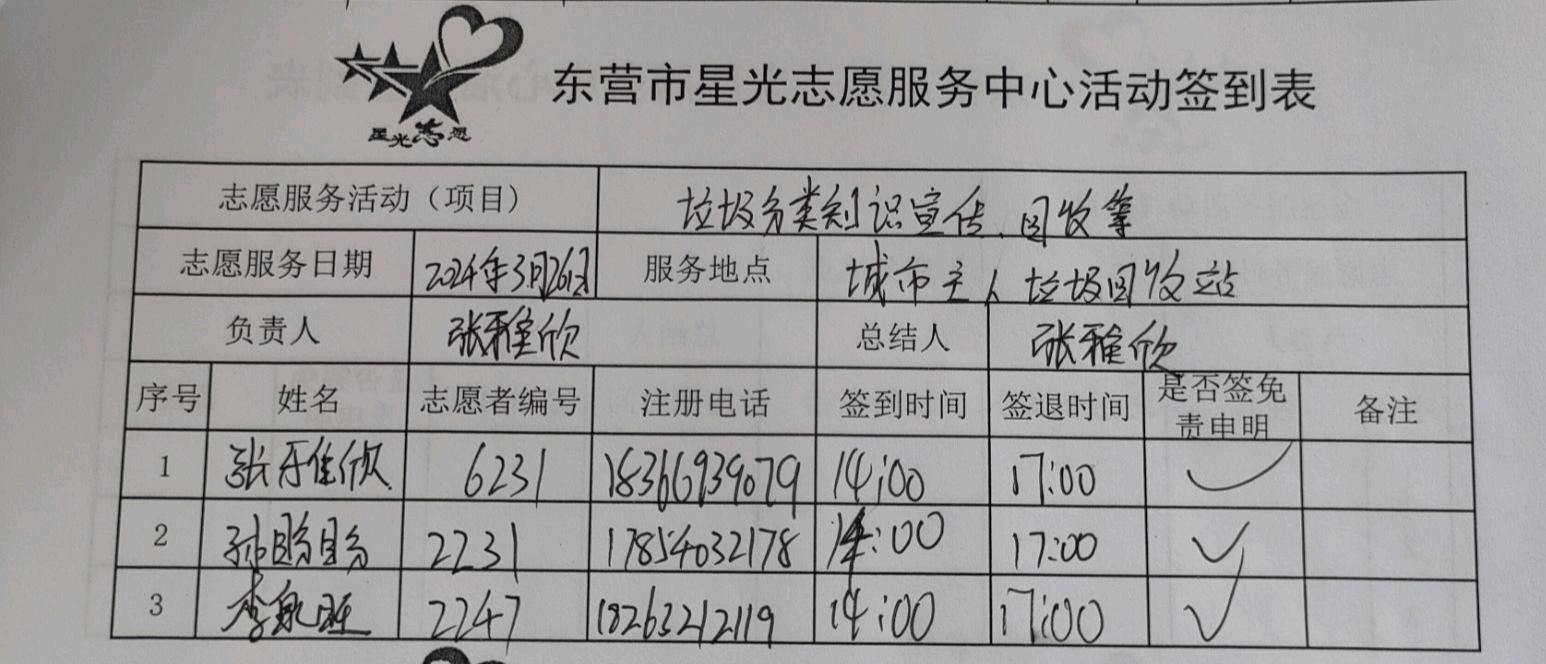 星光志愿
东营市星光志愿服务中心活动签到表
志愿服务活动（项目） 垃圾分类知识宣传、回收等
志愿服务日期 2024年3月26日 服务地点 城市主人垃圾回收站
负责人 张雅欣 总结人 张雅欣
序号 姓名 志愿者编号 注册电话 签到时间 签退时间 是否签免责申明 备注
1 张雅欣 6231 18366939079 14:00 17:00 ✓
2 孙盼盼 2231 17854032178 14:00 17:00 ✓
3 李 2247 18263212119 14:00 17:00 ✓